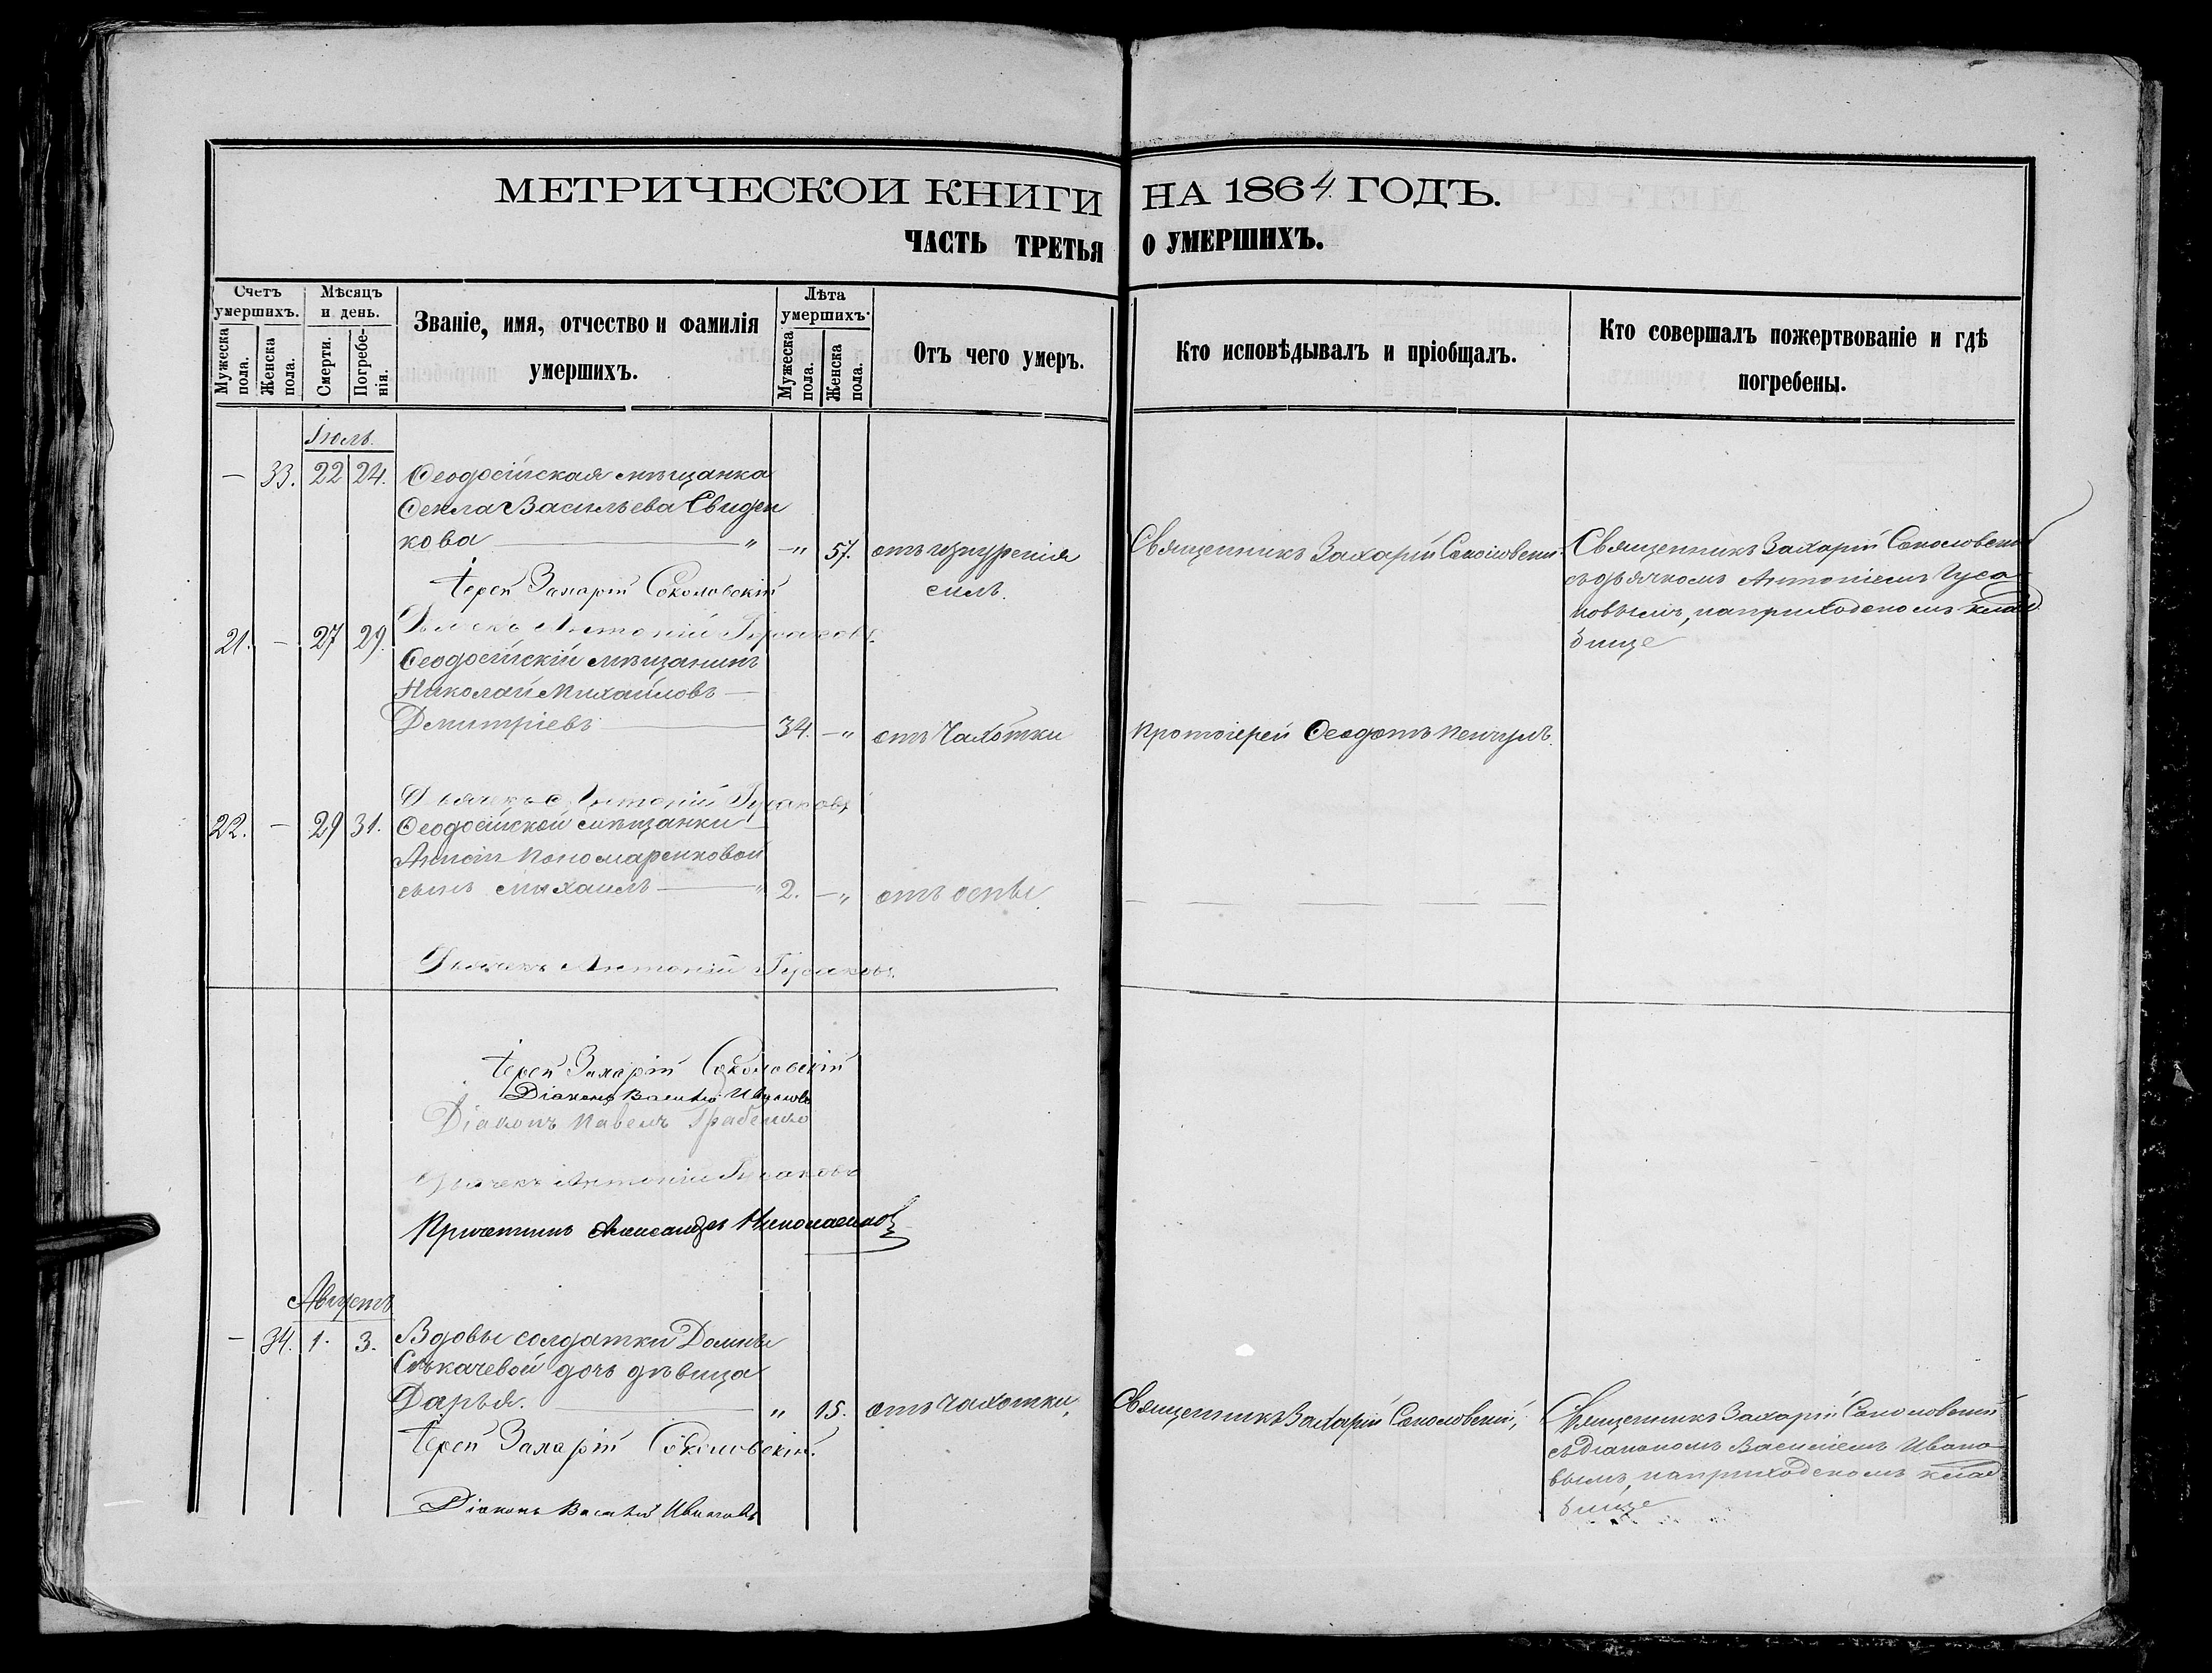 МЕТРИЧЕСКОЙ КНИГИ НА 1864 ГОДЪ.
ЧАСТЬ ТРЕТЬЯ О УМЕРШИХЪ.
Счетъ умершихъ.
Мужеска пола.
Женска пола.
Мѣсяцъ и день.
Смерти.
Погребенія.
Званіе, имя, отчество и фамилія
умершихъ.
Лѣта умершихъ.
Мужеска пола.
Женска пола.
Отъ чего умеръ.
Кто исповѣдывалъ и пріобщалъ.
Кто совершалъ пожертвованіе и гдѣ
погребены.
Іюль.
— 33. 22 24. Ѳеодосійская мѣщанка
Ѳекла Васильева
кова — " —" 57. отъ изнуренія
силъ.
Священникъ Захарій Соколовскій
Священникъ Захарій Соколовскій
съ дьячкомъ Антоніемъ Гуса
ковымъ, на приходскомъ клад
бище
Іерей Захарій Соколовскій
Дьячекъ Антоній Гусаковъ.
21. — 27 29. Ѳеодосійскій мѣщанинъ
Николай Михайловъ —
Дмитріевъ — 34. —" отъ Чахотки
Протоіерей Ѳеодотъ
Дьячекъ Антоній Гусаковъ
22. — 29 31. Ѳеодосійской мѣщанки —
Пономаренковой
сынъ Михаилъ — " 2. —" отъ оспы.
Дьячекъ Антоній Гусаковъ.
Іерей Захарій Соколовскій
Діаконъ Василій Ивановъ
Діаконъ Павелъ
Дьячекъ Антоній Гусаковъ
Причетникъ Александръ
Августъ
— 34. 1. 3. Вдовы солдатки Домны
Сѣкачевой дочь дѣвица
Дарья. — " 15. отъ чахотки,
Священникъ Захарій Соколовскій,
Священникъ Захарій Соколовскій
съ діакономъ Василіемъ Ивано
вымъ, на приходскомъ клад
бище
Іерей Захарій Соколовскій.
Діаконъ Василій Ивановъ